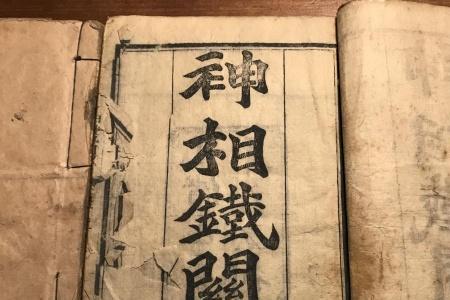 神相鐵關